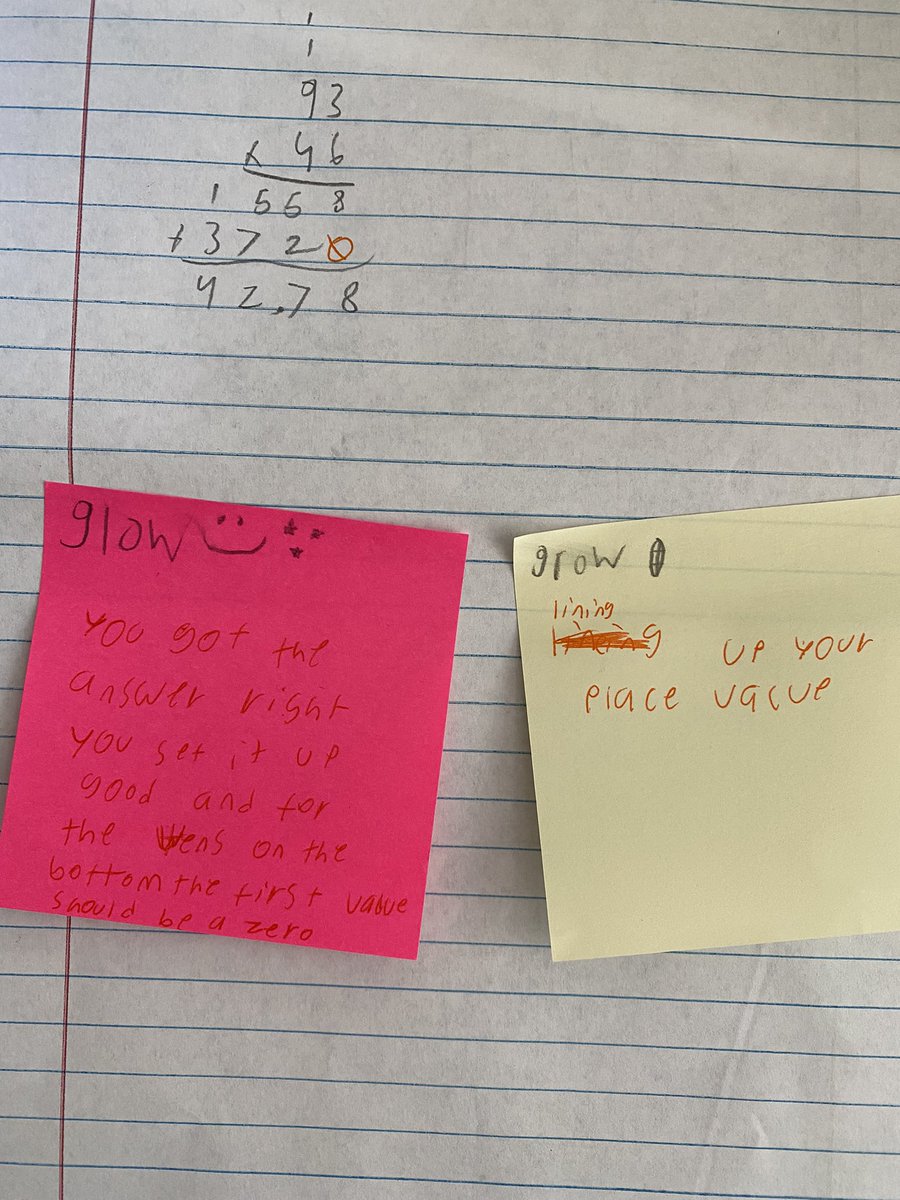 1
1
93
x 46
1 558
+ 3720
42,78
glow
you got the
answer right
you set it up
good and for
the tens on the
bottom the first value
should be a zero
grow
lining
up your
place value